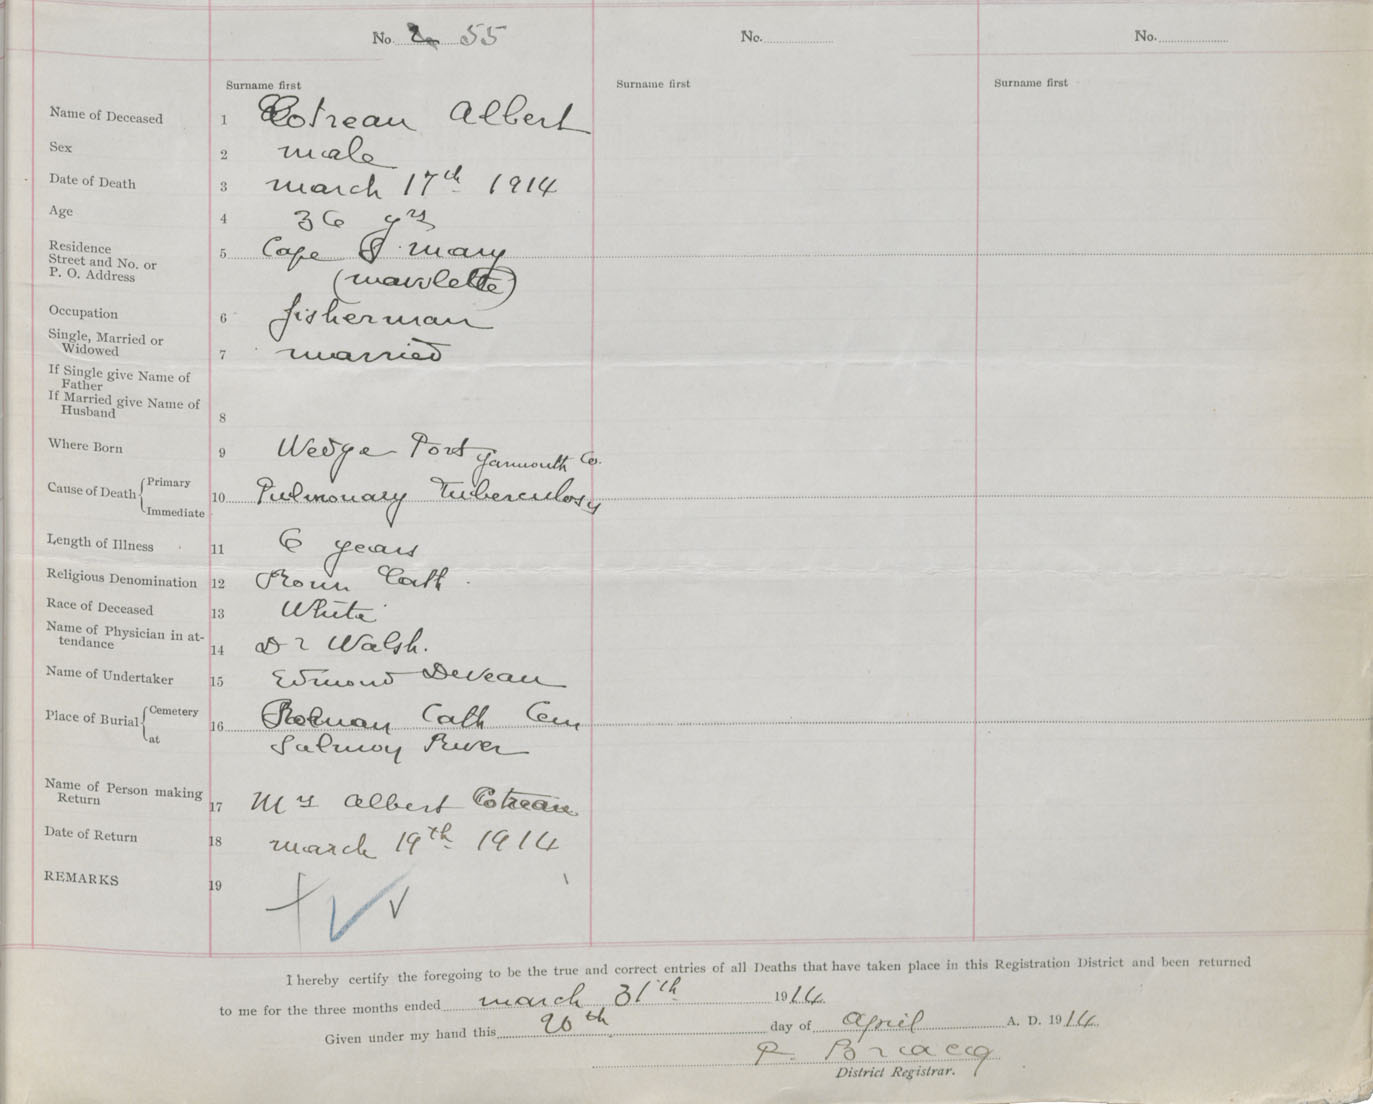 No. 55
No.
No.
Surname first
Surname first
Surname first
Name of Deceased 1 Cotreau Albert
Sex 2 male
Date of Death 3 march 17th 1914
Age 4 36 yrs
Residence
Street and No. or
P. O. Address 5 Cape St mary
(mavilette)
Occupation 6 fisherman
Single, Married or
Widowed 7 married
If Single give Name of
Father
If Married give Name of
Husband 8
Where Born 9 Wedge Port Yarmouth Co.
Cause of Death { Primary
Immediate 10 Pulmonary Tuberculosy
Length of Illness 11 6 years
Religious Denomination 12 Rom Cath
Race of Deceased 13 White
Name of Physician in at-
tendance 14 Dr Walsh.
Name of Undertaker 15 Edmond Deveau
Place of Burial { Cemetery
at 16 Roman Cath Cem
Salmon River
Name of Person making
Return 17 Mrs Albert Cotreau
Date of Return 18 march 19th 1914
REMARKS 19
I hereby certify the foregoing to be the true and correct entries of all Deaths that have taken place in this Registration District and been returned
to me for the three months ended march 31th 1914
Given under my hand this 20th day of April A. D. 1914
District Registrar.